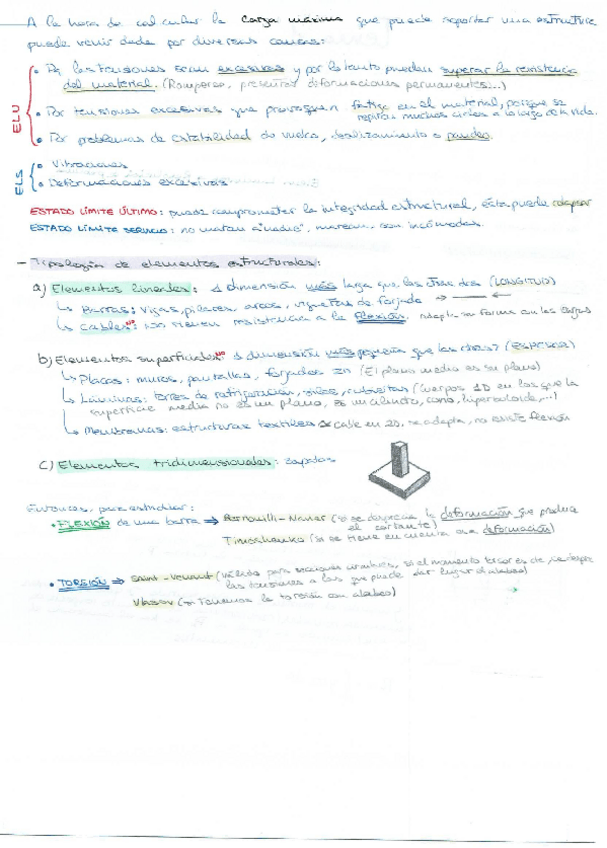 A la hora de calcular la carga máxima que puede soportar una estructura
puede venir dada por diversas causas:
ELU
• Pq las tensiones sean excesivas y por lo tanto puedan superar la resistencia
del material. (Romperse, presentar deformaciones permanentes...)
• Por tensiones excesivas que provoquen fatiga en el material, porque se
repitan muchos ciclos a lo largo de la vida.
• Por problemas de estabilidad do vuelco, deslizamiento o pandeo.
ELS
• Vibraciones
• Deformaciones excesivas
ESTADO LÍMITE ÚLTIMO: puede comprometer la integridad estructural, ésta puede colapsar
ESTADO LÍMITE SERVICIO: no matan a "nadie", marean, son incómodas.
- Tipología de elementos estructurales:
a) Elementos lineales: 1 dimensión más larga que las otras dos (LONGITUD)
↳ Barras: vigas, pilares, arcos, viguetas de forjado
↳ Cables: no tienen resistencia a la flexión. adapta su forma a las cargas
b) Elementos superficiales 1 dimensión más pequeña que las otras 2 (ESPESOR)
↳ Placas: muros, pantallas, forjados (El plano medio es su plano)
↳ Láminas: torres de refrigeración, cubiertas (cuerpos en los que la
superficie media no es un plano, es un cilindro, cono, hiperboloide,...)
↳ Membranas: estructuras textiles cable en 2D. se adapta, no existe flexión
c) Elementos tridimensionales: zapatas
Entonces, para estudiar:
• FLEXIÓN de una barra ⇒ Bernouilli-Navier (si se desprecia la deformación que produce
el cortante)
Timoshenko (si se tiene en cuenta esa deformación)
• TORSIÓN ⇒ Saint-Venant (válido para secciones si el momento torsor
las tensiones a las que puede dar lugar el alabeo)
Vlasov (Tenemos la torsión con alabeo)